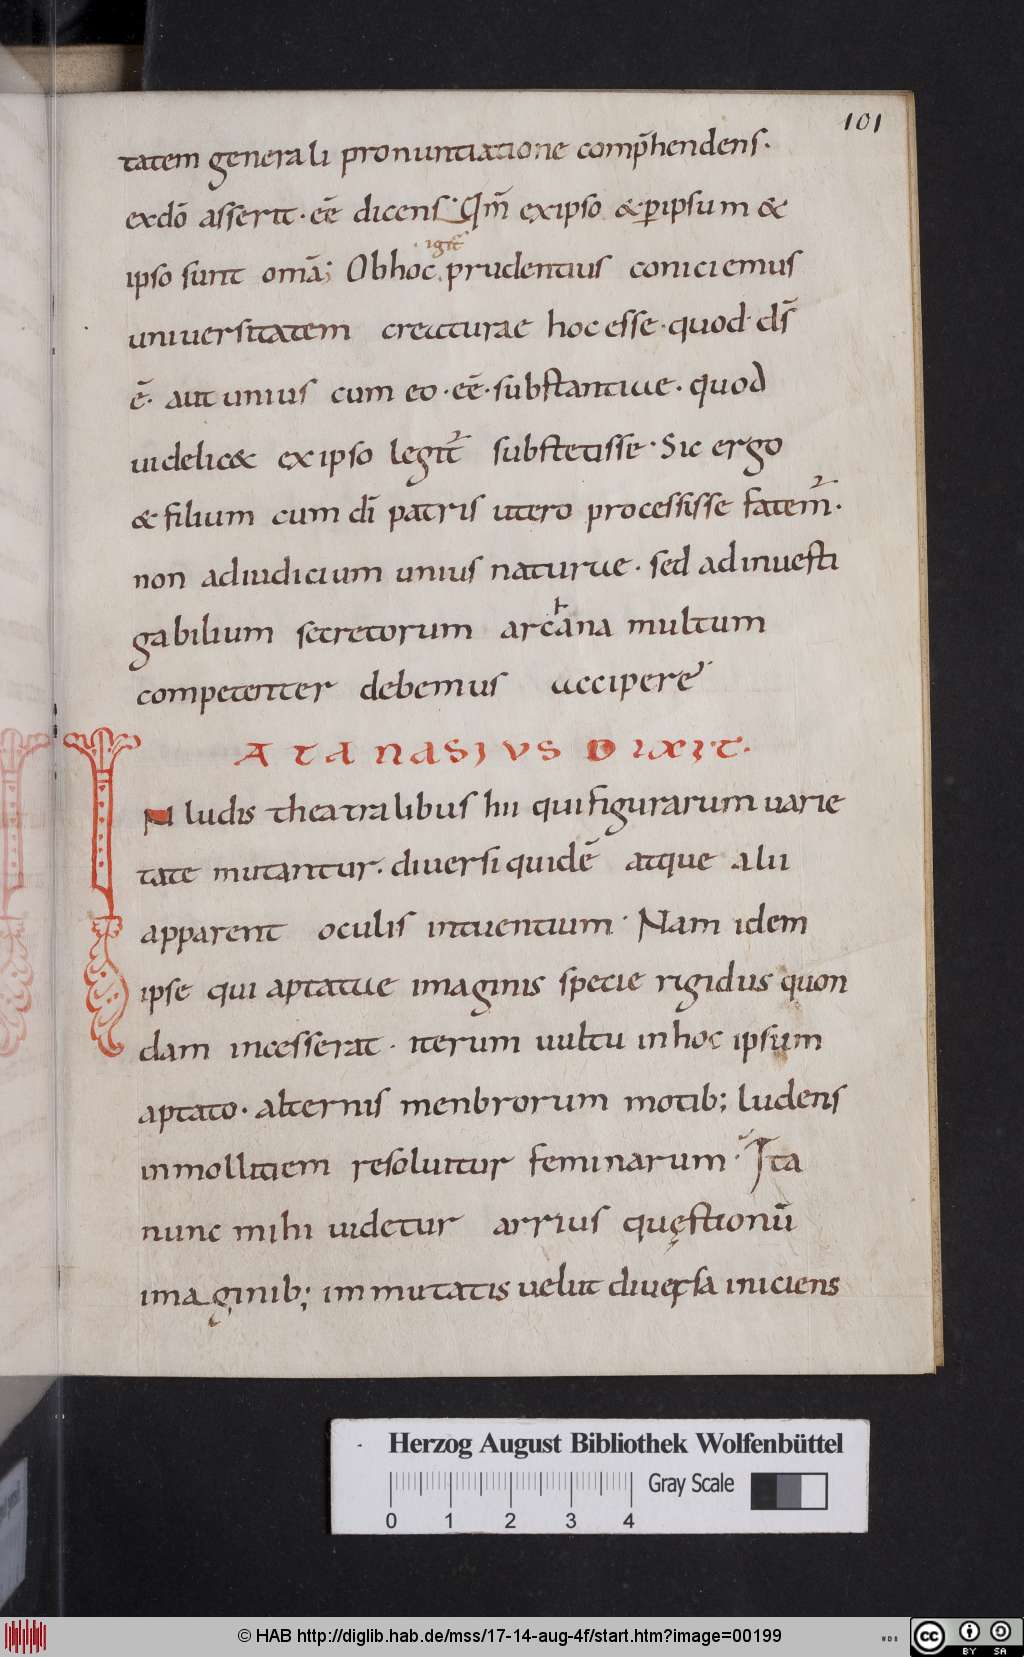 101
tatem generali pronuntiatione comp̄hendens·
exdō asserit· eē dicens· Qm̄ exipso & p̱ipsum &
igit̄
ipso sunt omā; Obhoc prudentius coniciemus
uniuersitatem creaturae hoc esse· quod· ds̄
ē· aut unius cum eo· eē· substantiae· quod
uidelic& ex ipso legit᷑ substetisse· Sic ergo
& filium cum dī patris utero processisse fatem᷑·
non adiudicium unius naturae· sed adinuesti
gabilium secretorum archana multum
competenter debemus accipere·
ATANASIVS DIXIT·
IN ludis theatralibus hii qui figurarum uarie
tate mutantur· diuersi quidē atque alii
apparent oculis intuentium· Nam idem
ipse qui aptatae imaginis specie rigidus quon
dam incesserat· iterum uultu in hoc ipsum
aptato· alternis menbrorum motib; ludens
inmollitiem resoluitur feminarum· Ita
nunc mihi uidetur arrius quęstionū
imaginib; immutatis uelut diuersa iniciens
Herzog August Bibliothek Wolfenbüttel
Gray Scale
0 1 2 3 4
© HAB http://diglib.hab.de/mss/17-14-aug-4f/start.htm?image=00199
WDB
cc BY SA